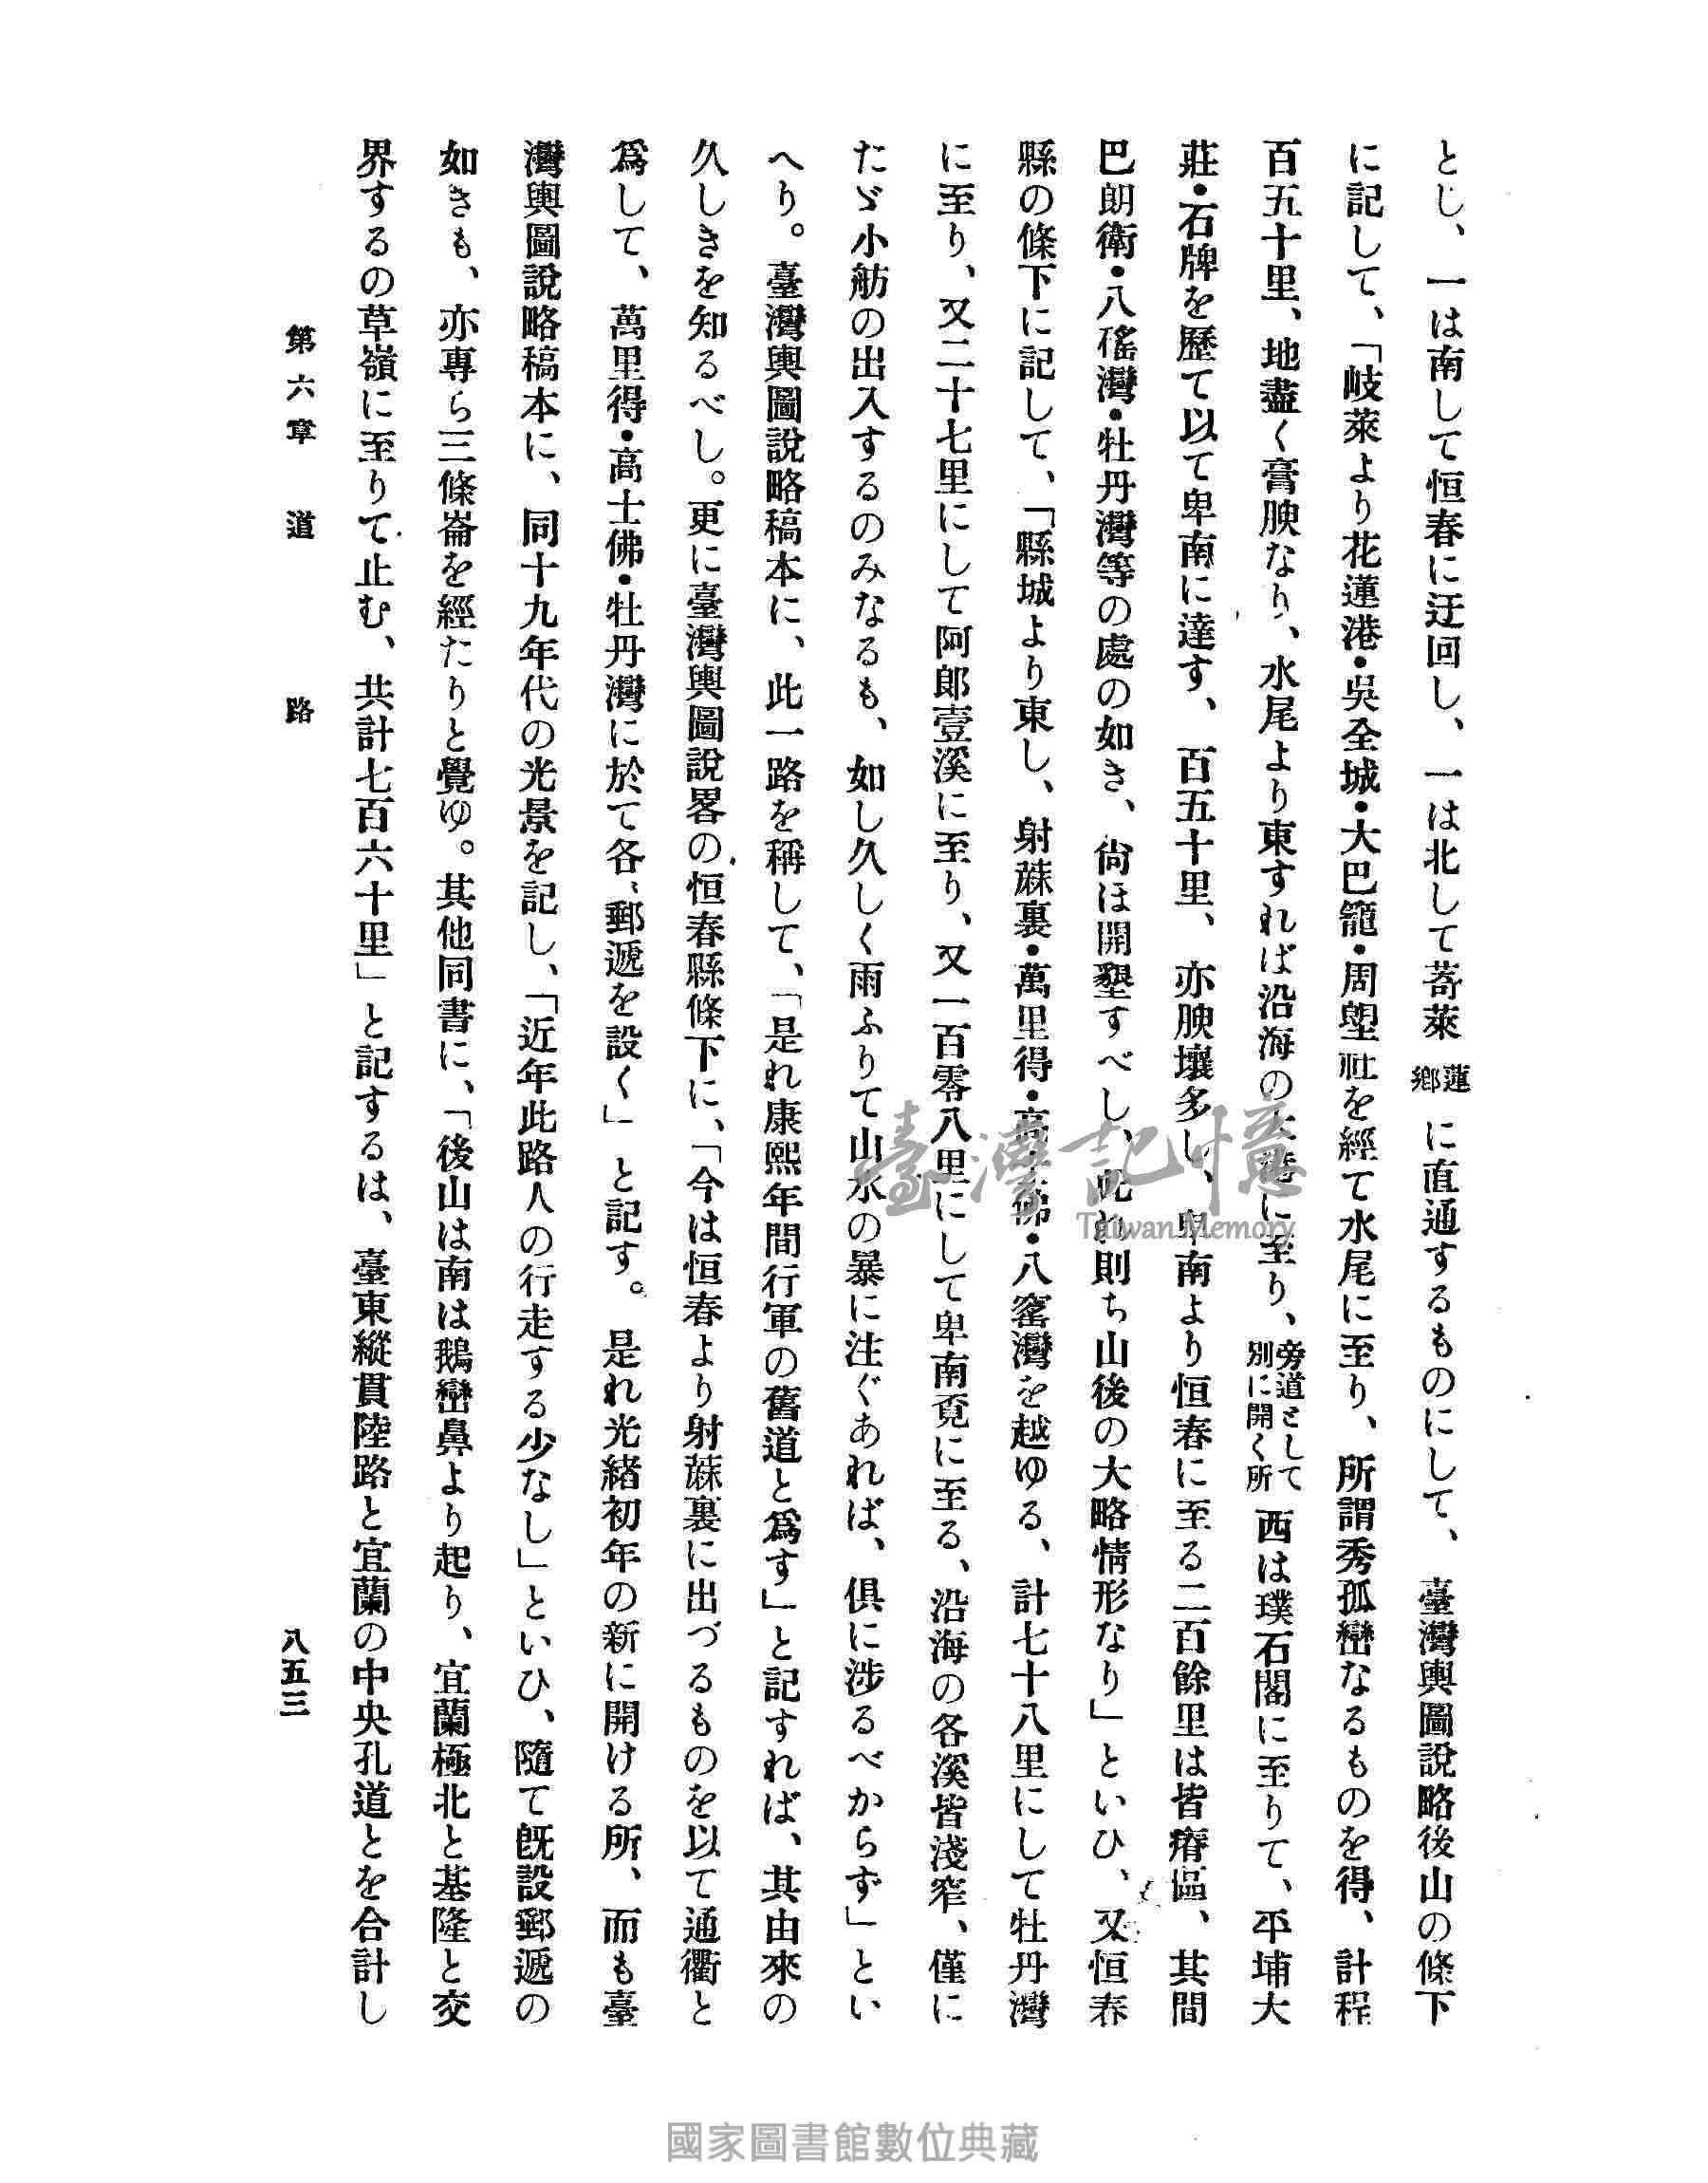 とし、一は南して恒春に迂回し、一は北して蓉萊蓮鄕に直通するものにして、臺灣輿圖說略後山の條下
に記して、「岐萊より花蓮港・吳全城・大巴籠・周塱社を經て水尾に至り、所謂秀孤巒なるものを得、計程
百五十里、地盡く膏腴なり、水尾より東すれば沿海の大港に至り、旁道として別に開く所西は璞石閣に至りて、平埔大
莊・石牌を歷て以て卑南に達す、百五十里、亦腴壤多し、卑南より恒春に至る二百餘里は皆瘠區、其間
巴朗衛・八磘灣・牡丹灣等の處の如き、尙ほ開墾すべし、此れ則ち山後の大略情形なり」といひ、又恒春
縣の條下に記して、「縣城より東し、射蔴裏・萬里得・高士佛・八窰灣を越ゆる、計七十八里にして牡丹灣
に至り、又二十七里にして阿郞壹溪に至り、又一百零八里にして卑南覔に至る、沿海の各溪皆淺窄、僅に
たゞ小舫の出入するのみなるも、如し久しく雨ふりて山水の暴に注ぐあれば、俱に涉るべからず」とい
へり。臺灣輿圖說略稿本に、此一路を稱して、「是れ康熙年間行軍の舊道と爲す」と記すれば、其由來の
久しきを知るべし。更に臺灣輿圖說畧の恒春縣條下に、「今は恒春より射蔴裏に出づるものを以て通衢と
爲して、萬里得・高士佛・牡丹灣に於て各〻郵遞を設く」と記す。是れ光緖初年の新に開ける所、而も臺
灣輿圖說略稿本に、同十九年代の光景を記し、「近年此路人の行走する少なし」といひ、隨て旣設郵遞の
如きも、亦專ら三條崙を經たりと覺ゆ。其他同書に、「後山は南は鵝巒鼻より起り、宜蘭極北と基隆と交
界するの草嶺に至りて止む、共計七百六十里」と記するは、臺東縱貫陸路と宜蘭の中央孔道とを合計し
第六章　道　路
八五三
臺灣記憶
Taiwan Memory
國家圖書館數位典藏